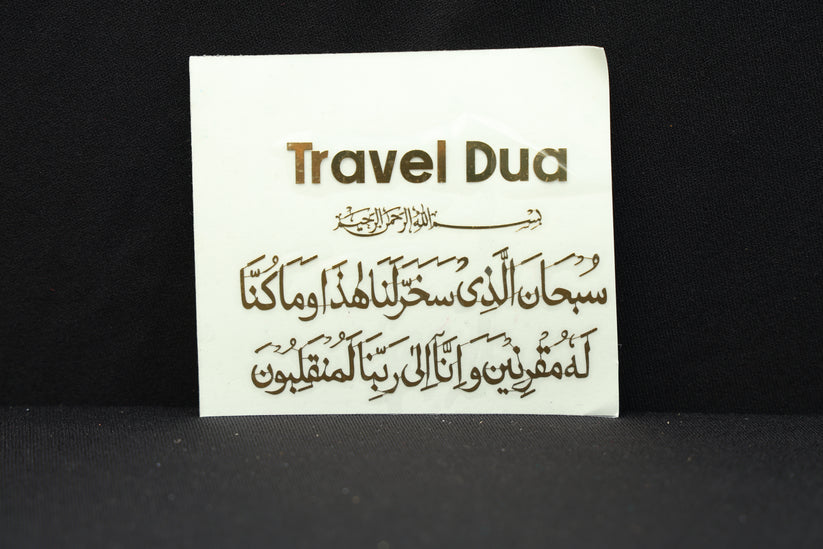 Travel Dua
بِسْمِ اللهِ الرَّحْمٰنِ الرَّحِيْمِ
سُبْحَانَ الَّذِیْ سَخَّرَلَنَا هٰذَا وَمَا كُنَّا
لَهٗ مُقْرِنِيْنَ وَاِنَّآ اِلٰی رَبِّنَا لَمُنْقَلِبُوْنَ